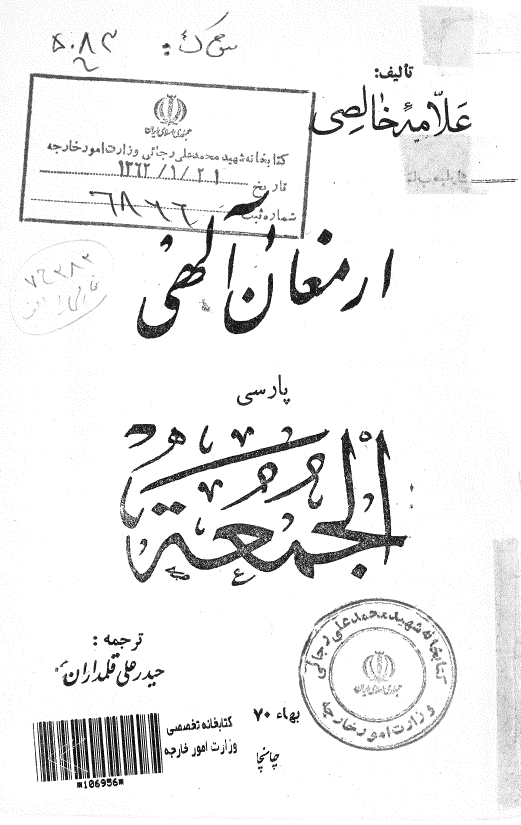 ۵۰۸۳
تألیف:
علّامهٔ خالصی
جمهوری اسلامی ایران
کتابخانه شهید محمدعلی رجائی وزارت امور خارجه
تاریخ ۱۳۶۲/۱/۲۱
شماره ثبت
ارمغان آلهی
پارسی
الجمعة
ترجمه:
حیدر علی قلمداران
کتابخانه شهید محمد علی رجائی
جمهوری اسلامی ایران
وزارت امور خارجه
بهاء ۷۰
کتابخانه تخصصی
وزارت امور خارجه
*106956*